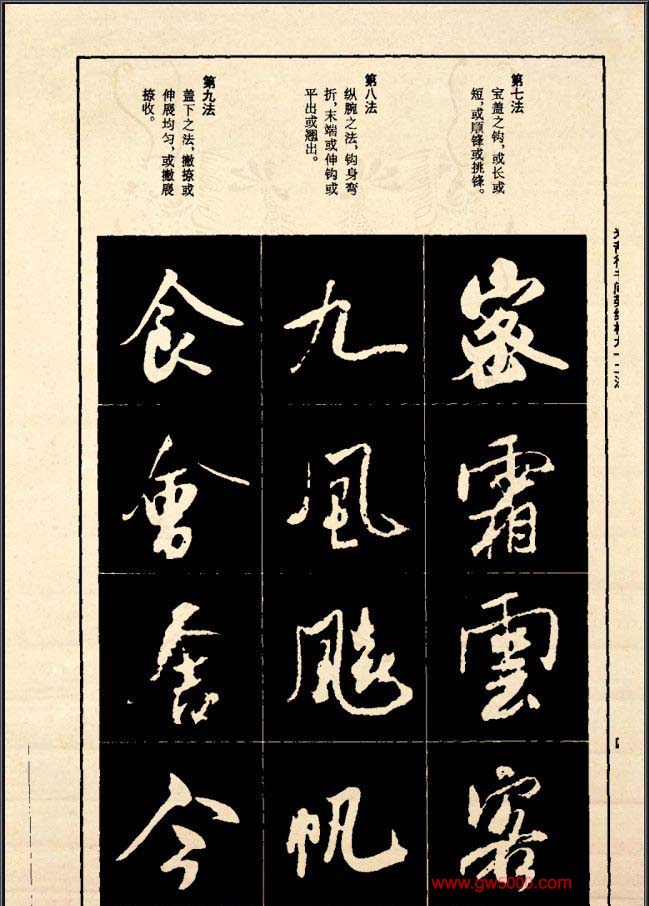 第七法
宝盖之钩，或长或
短，或顺锋或挑锋。
密
霜
雲
第八法
纵腕之法，钩身弯
折，末端或伸钩或
平出或翘出。
九
風
帆
第九法
盖下之法，撇捺或
伸展均匀，或撇展
捺收。
食
會
今
www.gw5000.com